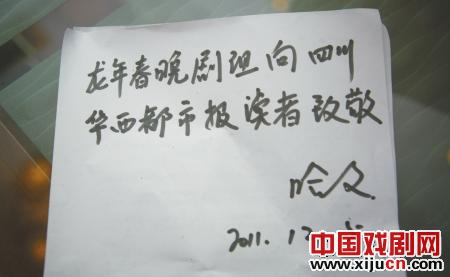 龙年春晚剧组向四川
华西都市报读者致敬
哈文
2011. 12
中国戏剧网
www.xijucn.com